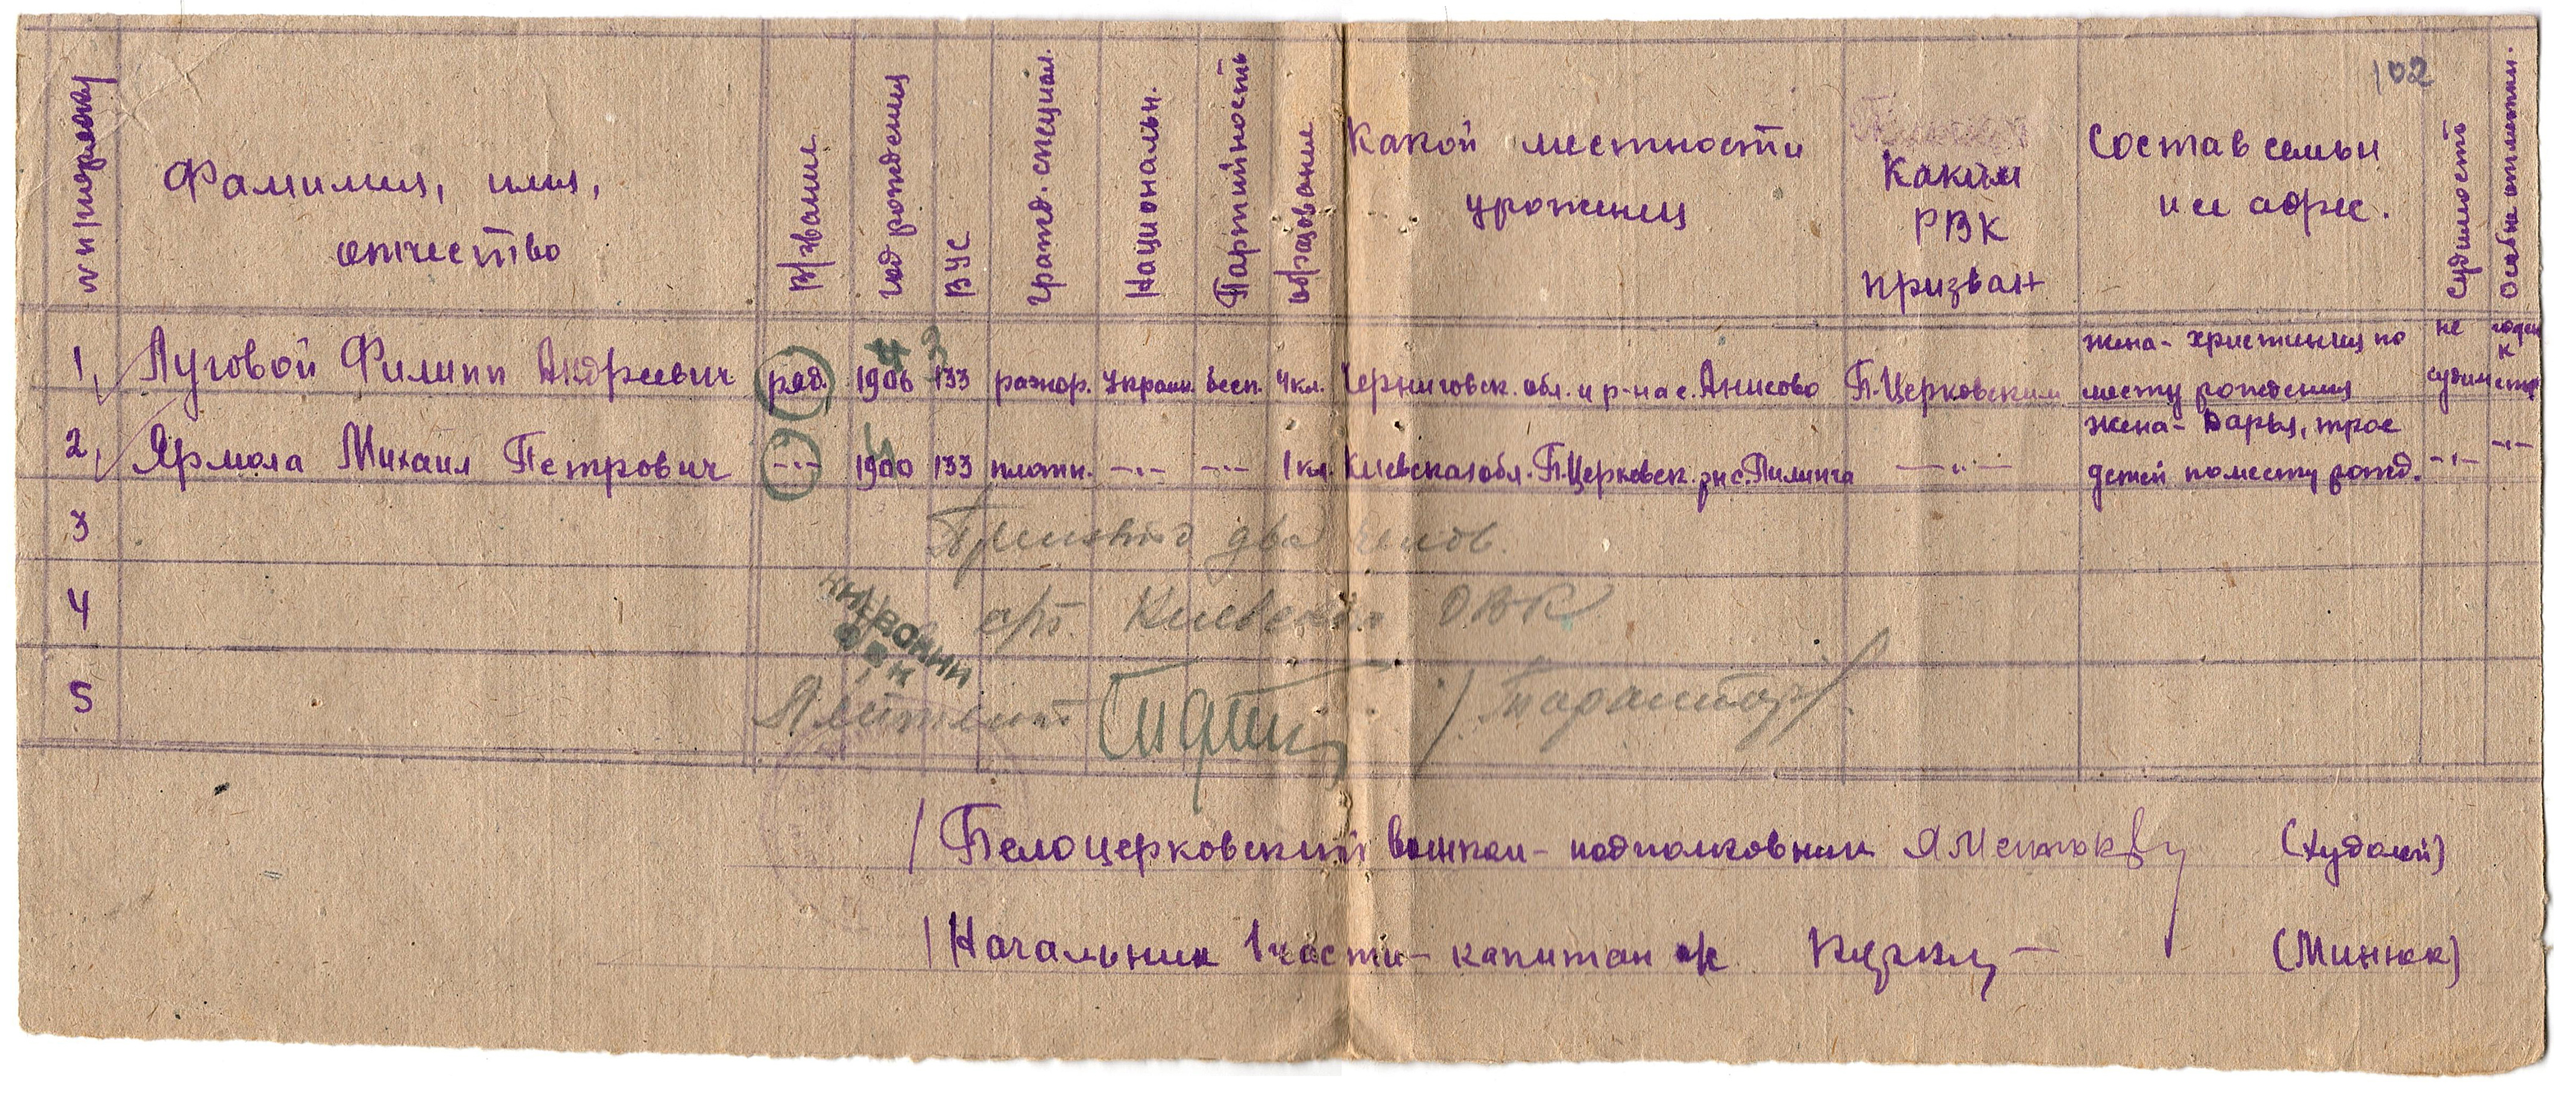 102
№№ п/порядку
Фамилия, имя,
отчество
В/звание
год рождения
ВУС
гражд. специал.
Национальн.
Партийность
образование
Какой местности
уроженец
Каким
РВК
призван
Состав семьи
и ее адрес.
Судимость
Особые отметки.
1, Луговой Филипп Андреевич ряд. 1906 133 разнор. украин. бесп. 4 кл. Черниговск. обл. и р-на с. Анисово Б.Церковским жена - христиния по
месту рождения не
судим годен
к
строю
4 3
2, Ярмола Михаил Петрович -"- 1900 133 плотн. -"- -"- 1 кл. Киевская обл. Б.Церковск. рн с. Пилипча -"- жена - Варья, трое
детей по месту рожд. -"- -"-
3
Принято два челов.
4
Киевского ОВК
5
Лейтенант
/ Белоцерковский воинком - подполковник (Худолей)
/ Начальник 1 части - капитан а/с (Минюк)